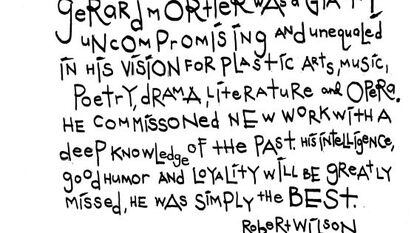 GERARD MORTIER WAS A GIANT
UNCOMPROMISING AND unequaled
IN HIS VISION FOR PLASTIC ARTS, MUSIC,
POETRY, DRAMA, LITERATURE and OPERA.
HE COMMISSONED NEW WORK WITH A
DEEP KNOWLedge OF THE PAST. HIS INTELLIGENCE,
good HUMOR AND LOYALITY WILL BE GREATLY
MISSED, HE WAS SIMPLY the BEST.
Robert WILSON